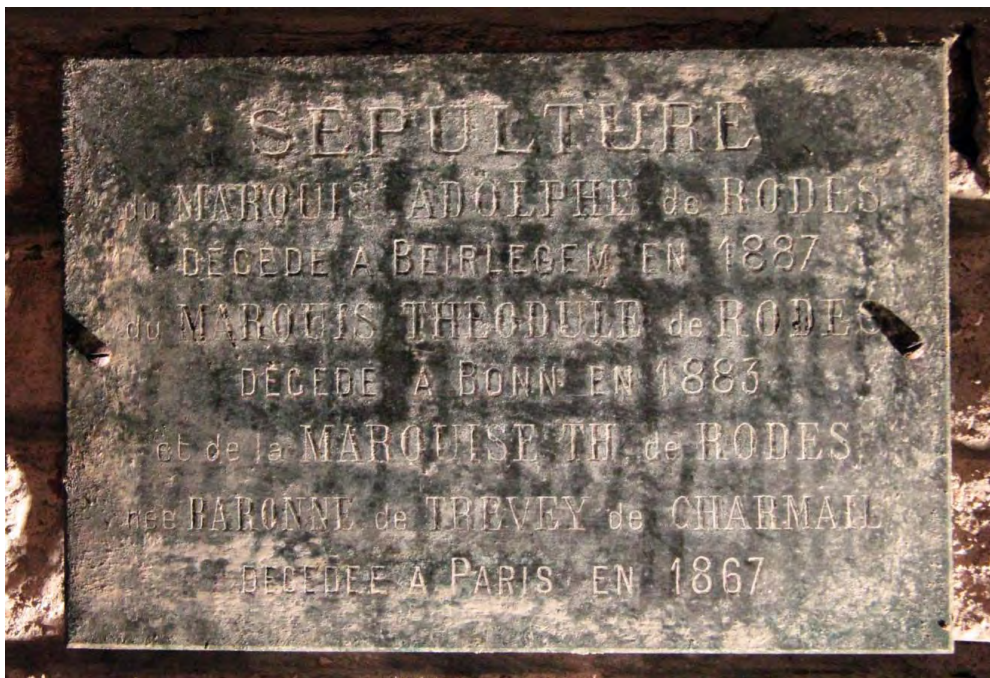 SÉPULTURE
du MARQUIS ADOLPHE de RODES
DÉCÉDÉ A BEIRLEGEM EN 1887
du MARQUIS THÉODULE de RODES
DÉCÉDÉ A BONN EN 1883
et de la MARQUISE TH. de RODES
née BARONNE de TREVEY de CHARMAIL
DÉCÉDÉE A PARIS EN 1867.